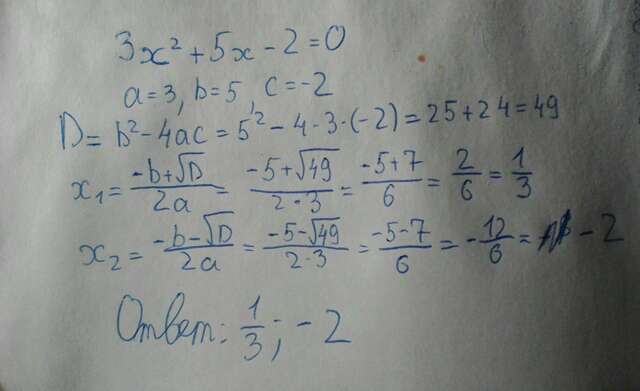 3x² + 5x - 2 = 0
a = 3, b = 5, c = -2
D = b² - 4ac = 5² - 4 · 3 · (-2) = 25 + 24 = 49
x₁ = (-b + √D)/(2a) = (-5 + √49)/(2 · 3) = (-5 + 7)/6 = 2/6 = 1/3
x₂ = (-b - √D)/(2a) = (-5 - √49)/(2 · 3) = (-5 - 7)/6 = -12/6 = -2
Ответ: 1/3; -2